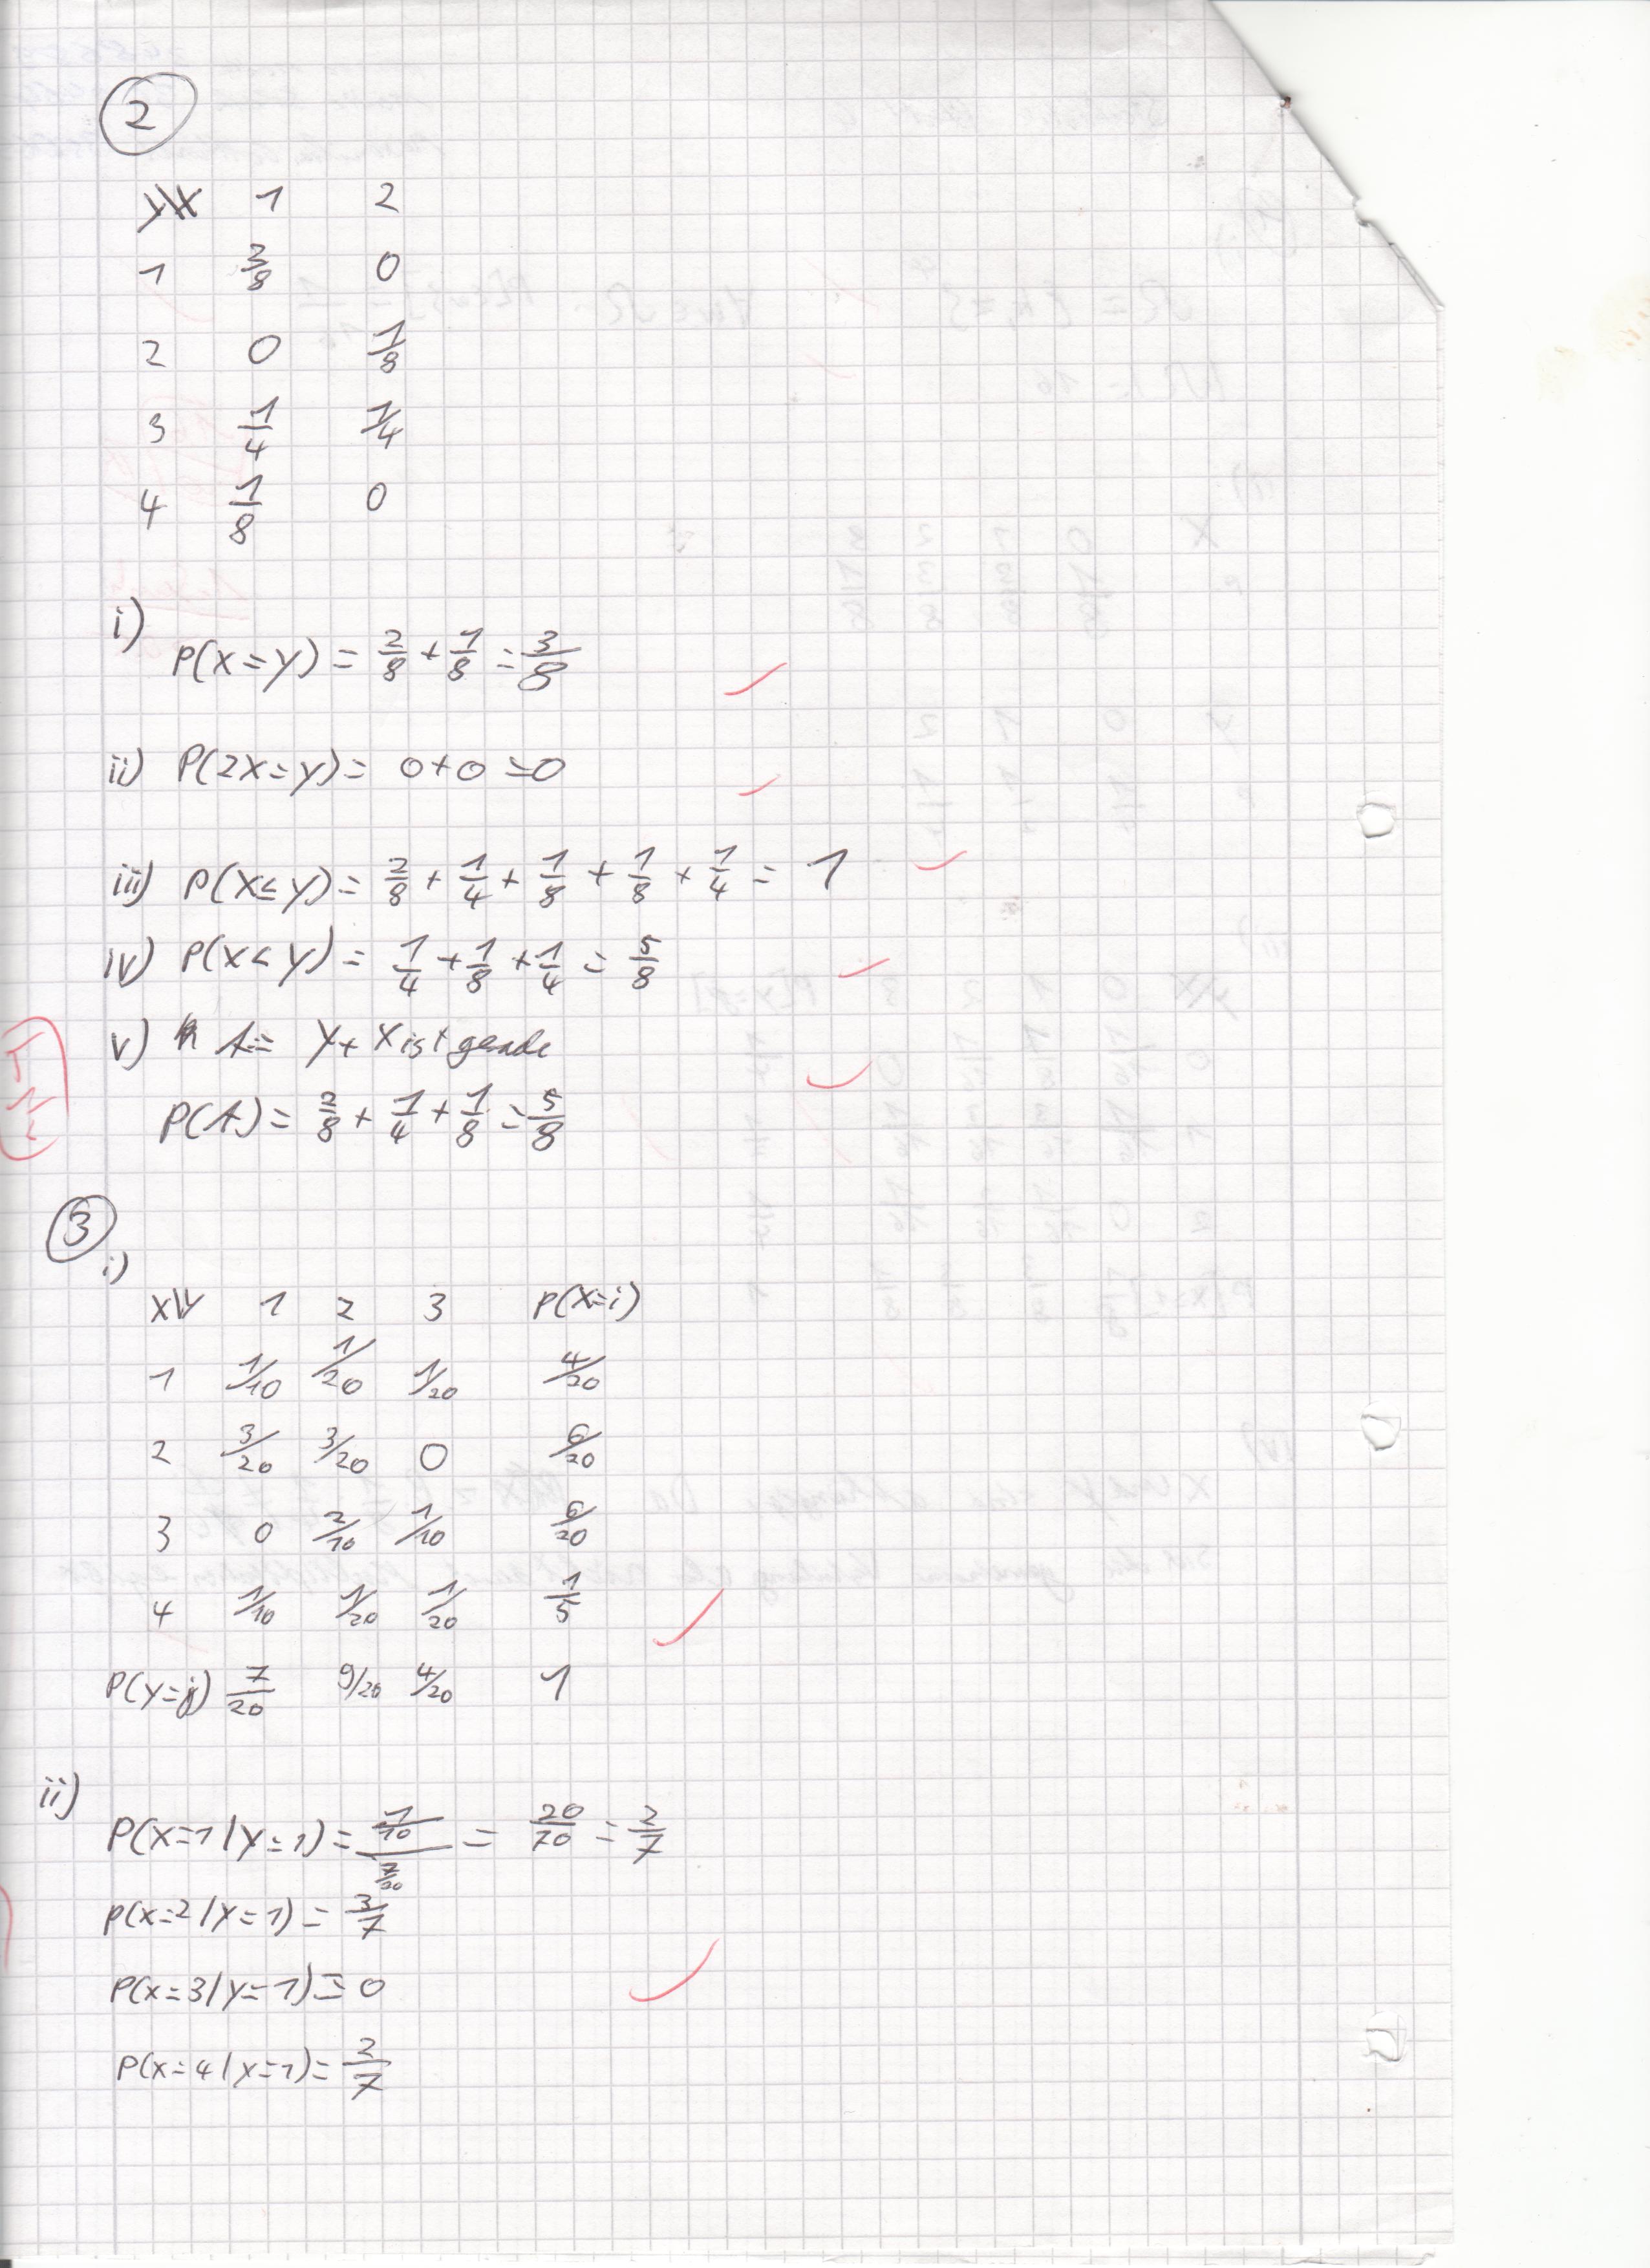 2
Y\X 1 2
1 2/8 0
2 0 1/8
3 1/4 1/4
4 1/8 0
i)
P(X=Y) = 2/8 + 1/8 = 3/8
ii) P(2X=Y) = 0+0 = 0
iii) P(X≤Y) = 2/8 + 1/4 + 1/8 + 1/8 + 1/4 = 1
iv) P(X<Y) = 1/4 + 1/8 + 1/4 = 5/8
v) A:= Y+X ist gerade
P(A) = 2/8 + 1/4 + 1/8 = 5/8
3
i)
X\Y 1 2 3 P(X=i)
1 1/10 1/20 1/20 4/20
2 3/20 3/20 0 6/20
3 0 2/10 1/10 6/20
4 1/10 1/20 1/20 1/5
P(Y=j) 7/20 9/20 4/20 1
ii)
P(X=1|Y=1) = (1/10)/(7/20) = 20/70 = 2/7
P(X=2|Y=1) = 3/7
P(X=3|Y=1) = 0
P(X=4|Y=1) = 2/7